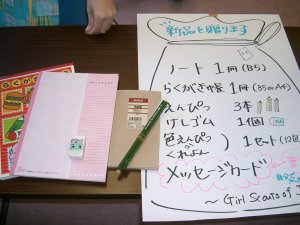 新品を贈ります
ノート 1冊 (B5)
らくがき帳 1冊 (B5orA4)
えんぴつ 3本
けしゴム 1個
色えんぴつ or くれよん ) 1セット (12色
メッセージカード
〜 Girl Scouts of
らくがき